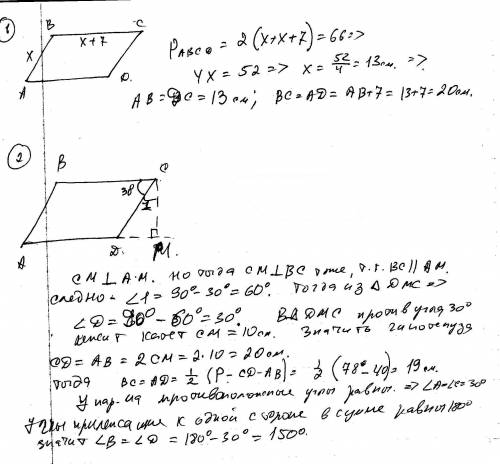 1
B
C
x
x+7
A
D.
P_ABCD = 2(x+x+7)=66=>
4x = 52 => x = 52/4 = 13см. =>.
AB = DC = 13 см; BC = AD = AB+7 = 13+7 = 20см.
2
B
C
30
1
A
D.
M.
CM ⊥ A.M. Но тогда CM ⊥ BC тоже, т.к. BC || AM.
Следно - ∠1 = 90° - 30° = 60°. Тогда из △ DMC =>
∠D = 90° - 60° = 30° В △DMC против угла 30°
лежит катет CM = 10см. Значить гипотенуза
CD = AB = 2CM = 2·10 = 20см.
Тогда BC = AD = 1/2 (P - CD - AB) = 1/2 (78 - 40) = 19см.
У пар-ма противоположные углы равны. => ∠A = ∠C = 30°
Углы прилежащие к одной стороне в сумме равны 180°
значит ∠B = ∠D = 180° - 30° = 150°.